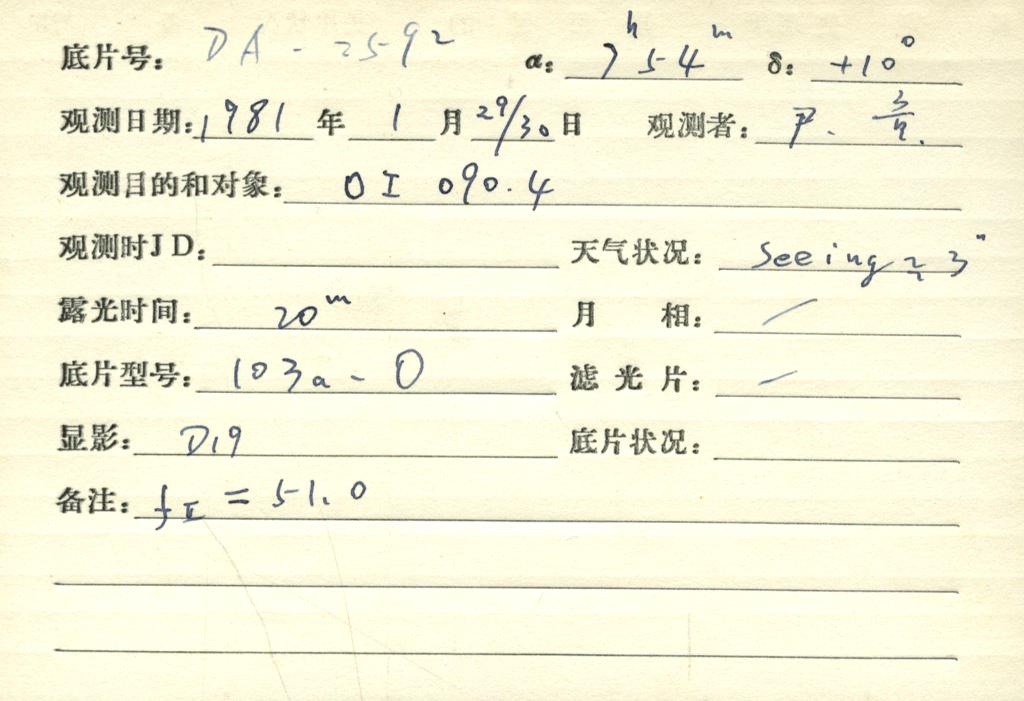 底片号: DA-2592 α: 7ʰ54ᵐ δ: +10°
观测日期: 1981 年 1 月 29/30 日 观测者: 尹.
观测目的和对象: OI 090.4
观测时JD: 天气状况: Seeing ≈ 3"
露光时间: 20ᵐ 月 相: /
底片型号: 103a-O 滤光片: /
显影: D19 底片状况:
备注: fɪ = 51.0